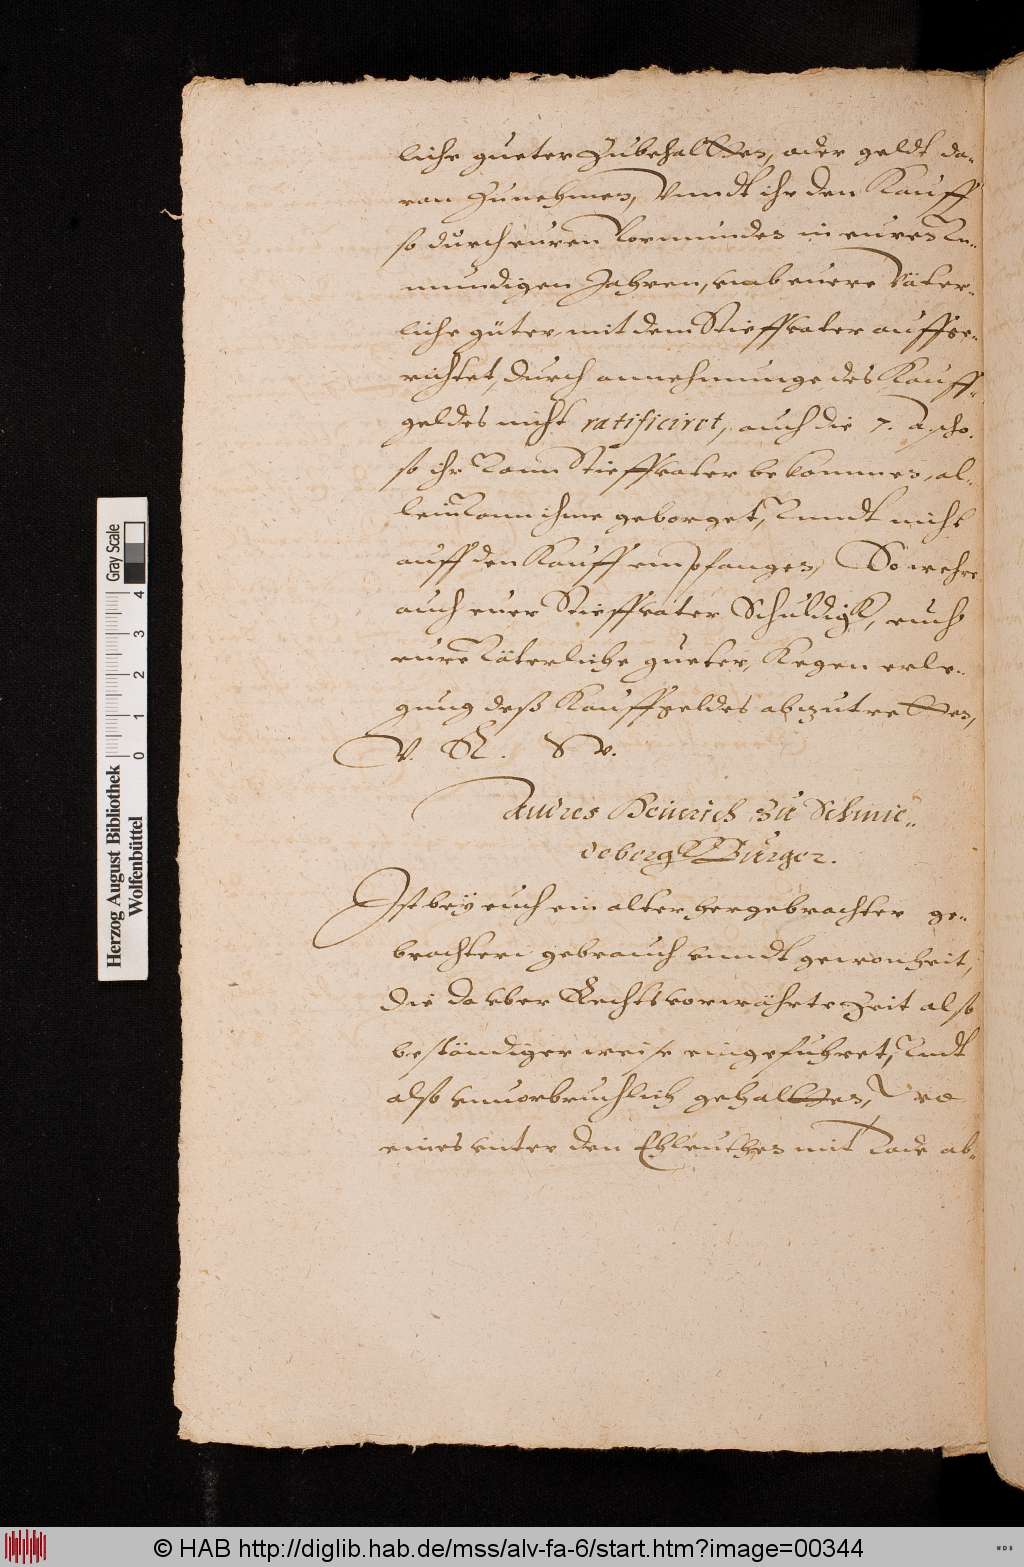 liche gueter zubehaltten, oder geldt da-
von zunehmen, Vnndt ihr den Kauff
so durch euren Vormunden in euren Vn-
mundigen Jahren, vmb euere Väter-
liche güter, mit dem Stieffvater auffge-
richtet, durch annehmunge des Kauff-
geldes nicht ratificiret, auch die 7. a. scho.
so ihr Vom Stieffvater bekommen, al-
lein Vonn ihme geborget, Vnndt nicht
auff den Kauff empfangen, So wehre
auch euer Stieffvater Schuldigk, euch
eure Väterliche gueter, Kegen erle-
gung deß Kauffgeldes abzutretten,
V. R. W.
Andres Heinrich zu Schmie-
deborg Bürger.
Ist bey euch ein alter hergebrachter ge-
brachter gebrauch vnndt gewonheit,
die da vber Rechtsvorwährte Zeit also
beständiger weise eingefuhret, Vndt
also vnuorbruchlich gehaltten, Wo
eines vnter den Ehleuthen mit Tode ab-
Herzog August Bibliothek
Wolfenbüttel
0 1 2 3 4
Gray Scale
© HAB http://diglib.hab.de/mss/alv-fa-6/start.htm?image=00344